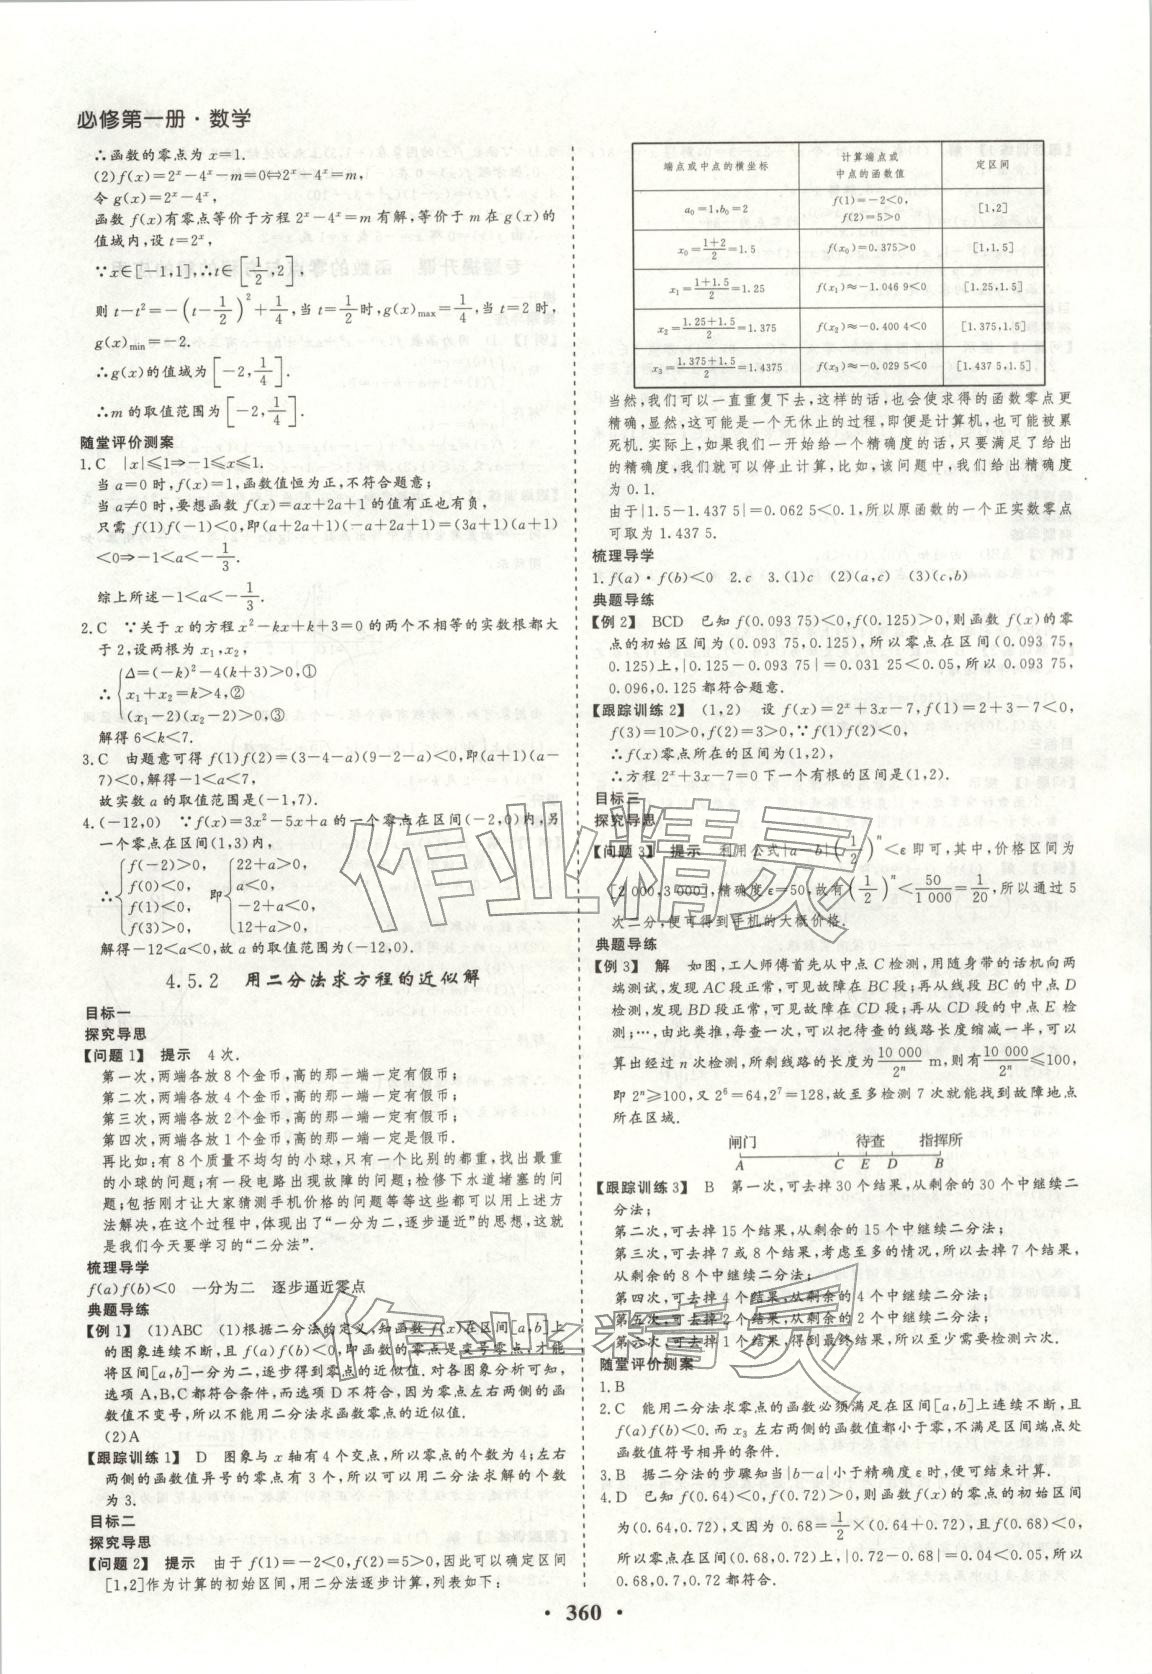 必修第一册·数学
∴函数的零点为 x=1.
(2)f(x)=2ˣ-4ˣ-m=0⇔2ˣ-4ˣ=m,
令 g(x)=2ˣ-4ˣ,
函数 f(x)有零点等价于方程 2ˣ-4ˣ=m 有解,等价于 m 在 g(x)的
值域内,设 t=2ˣ,
∵x∈[-1,1],∴t∈[1/2,2],
则 t-t²=-(t-1/2)²+1/4,当 t=1/2时,g(x)max=1/4,当 t=2 时,
g(x)min=-2.
∴g(x)的值域为[-2,1/4].
∴m 的取值范围为[-2,1/4].
随堂评价测案
1.C |x|≤1⇒-1≤x≤1.
当 a=0 时,f(x)=1,函数值恒为正,不符合题意;
当 a≠0 时,要想函数 f(x)=ax+2a+1 的值有正也有负,
只需 f(1)f(-1)<0,即(a+2a+1)(-a+2a+1)=(3a+1)(a+1)
<0⇒-1<a<-1/3.
综上所述-1<a<-1/3.
2.C ∵关于 x 的方程 x²-kx+k+3=0 的两个不相等的实数根都大
于 2,设两根为 x₁,x₂,
∴{Δ=(-k)²-4(k+3)>0,①
x₁+x₂=k>4,②
(x₁-2)(x₂-2)>0,③
解得 6<k<7.
3.C 由题意可得 f(1)f(2)=(3-4-a)(9-2-a)<0,即(a+1)(a-
7)<0,解得-1<a<7,
故实数 a 的取值范围是(-1,7).
4.(-12,0) ∵f(x)=3x²-5x+a 的一个零点在区间(-2,0)内,另
一个零点在区间(1,3)内,
∴{f(-2)>0, f(0)<0, f(1)<0, f(3)>0, 即{22+a>0, a<0, -2+a<0, 12+a>0,
解得-12<a<0,故 a 的取值范围为(-12,0).
4.5.2 用二分法求方程的近似解
目标一
探究导思
【问题 1】 提示 4 次.
第一次,两端各放 8 个金币,高的那一端一定有假币;
第二次,两端各放 4 个金币,高的那一端一定有假币;
第三次,两端各放 2 个金币,高的那一端一定有假币;
第四次,两端各放 1 个金币,高的那一端一定是假币.
再比如:有 8 个质量不均匀的小球,只有一个比别的都重,找出最重
的小球的问题;有一段电路出现故障的问题;检修下水道堵塞的问
题;包括刚才让大家猜测手机价格的问题等等这些都可以用上述方
法解决,在这个过程中,体现出了“一分为二,逐步逼近”的思想,这就
是我们今天要学习的“二分法”.
梳理导学
f(a)f(b)<0 一分为二 逐步逼近零点
典题导练
【例 1】 (1)ABC (1)根据二分法的定义,知函数 f(x)在区间[a,b]上
的图象连续不断,且 f(a)f(b)<0,即函数的零点是变号零点,才能
将区间[a,b]一分为二,逐步得到零点的近似值.对各图象分析可知,
选项 A,B,C 都符合条件,而选项 D 不符合,因为零点左右两侧的函
数值不变号,所以不能用二分法求函数零点的近似值.
(2)A
【跟踪训练 1】 D 图象与 x 轴有 4 个交点,所以零点的个数为 4;左右
两侧的函数值异号的零点有 3 个,所以可以用二分法求解的个数
为 3.
目标二
探究导思
【问题 2】 提示 由于 f(1)=-2<0,f(2)=5>0,因此可以确定区间
[1,2]作为计算的初始区间,用二分法逐步计算,列表如下:
端点或中点的横坐标 计算端点或中点的函数值 定区间
a₀=1,b₀=2 f(1)=-2<0,f(2)=5>0 [1,2]
x₀=(1+2)/2=1.5 f(x₀)=0.375>0 [1,1.5]
x₁=(1+1.5)/2=1.25 f(x₁)≈-1.046 9<0 [1.25,1.5]
x₂=(1.25+1.5)/2=1.375 f(x₂)≈-0.400 4<0 [1.375,1.5]
x₃=(1.375+1.5)/2=1.4375 f(x₃)≈-0.029 5<0 [1.437 5,1.5]
当然,我们可以一直重复下去,这样的话,也会使求得的函数零点更
精确,显然,这可能是一个无休止的过程,即便是计算机,也可能被累
死机.实际上,如果我们一开始给一个精确度的话,只要满足了给出
的精确度,我们就可以停止计算,比如,该问题中,我们给出精确度
为 0.1.
由于|1.5-1.437 5|=0.062 5<0.1,所以原函数的一个正实数零点
可取为 1.437 5.
梳理导学
1.f(a)·f(b)<0 2.c 3.(1)c (2)(a,c) (3)(c,b)
典题导练
【例 2】 BCD 已知 f(0.093 75)<0,f(0.125)>0,则函数 f(x)的零
点的初始区间为(0.093 75,0.125),所以零点在区间(0.093 75,
0.125)上,|0.125-0.093 75|=0.031 25<0.05,所以 0.093 75,
0.096,0.125 都符合题意.
【跟踪训练 2】 (1,2) 设 f(x)=2ˣ+3x-7,f(1)=2+3-7<0,
f(3)=10>0,f(2)=3>0,∵f(1)f(2)<0,
∴f(x)零点所在的区间为(1,2),
∴方程 2ˣ+3x-7=0 下一个有根的区间是(1,2).
目标三
探究导思
【问题 3】 提示 利用公式|a-b|(1/2)ⁿ<ε 即可,其中,价格区间为
[2 000,3 000],精确度 ε=50,故有(1/2)ⁿ<50/1 000=1/20,所以通过 5
次二分,便可得到手机的大概价格.
典题导练
【例 3】 解 如图,工人师傅首先从中点 C 检测,用随身带的话机向两
端测试,发现 AC 段正常,可见故障在 BC 段;再从线段 BC 的中点 D
检测,发现 BD 段正常,可见故障在 CD 段;再从 CD 段的中点 E 检
测;…,由此类推,每查一次,可以把待查的线路长度缩减一半,可以
算出经过 n 次检测,所剩线路的长度为10 000/2ⁿ m,则有10 000/2ⁿ≤100,
即 2ⁿ≥100,又 2⁶=64,2⁷=128,故至多检测 7 次就能找到故障地点
所在区域.
闸门 待查 指挥所
A C E D B
【跟踪训练 3】 B 第一次,可去掉 30 个结果,从剩余的 30 个中继续二
分法;
第二次,可去掉 15 个结果,从剩余的 15 个中继续二分法;
第三次,可去掉 7 或 8 个结果,考虑至多的情况,所以去掉 7 个结果,
从剩余的 8 个中继续二分法;
第四次,可去掉 4 个结果,从剩余的 4 个中继续二分法;
第五次,可去掉 2 个结果,从剩余的 2 个中继续二分法;
第六次,可去掉 1 个结果,得到最终结果,所以至少需要检测六次.
随堂评价测案
1.B
2.C 能用二分法求零点的函数必须满足在区间[a,b]上连续不断,且
f(a)f(b)<0.而 x₃ 左右两侧的函数值都小于零,不满足区间端点处
函数值符号相异的条件.
3.B 据二分法的步骤知当|b-a|小于精确度 ε 时,便可结束计算.
4.D 已知 f(0.64)<0,f(0.72)>0,则函数 f(x)的零点的初始区间
为(0.64,0.72),又因为 0.68=1/2×(0.64+0.72),且 f(0.68)<0,
所以零点在区间(0.68,0.72)上,|0.72-0.68|=0.04<0.05,所以
0.68,0.7,0.72 都符合.
·360·
作业精灵
作业精灵